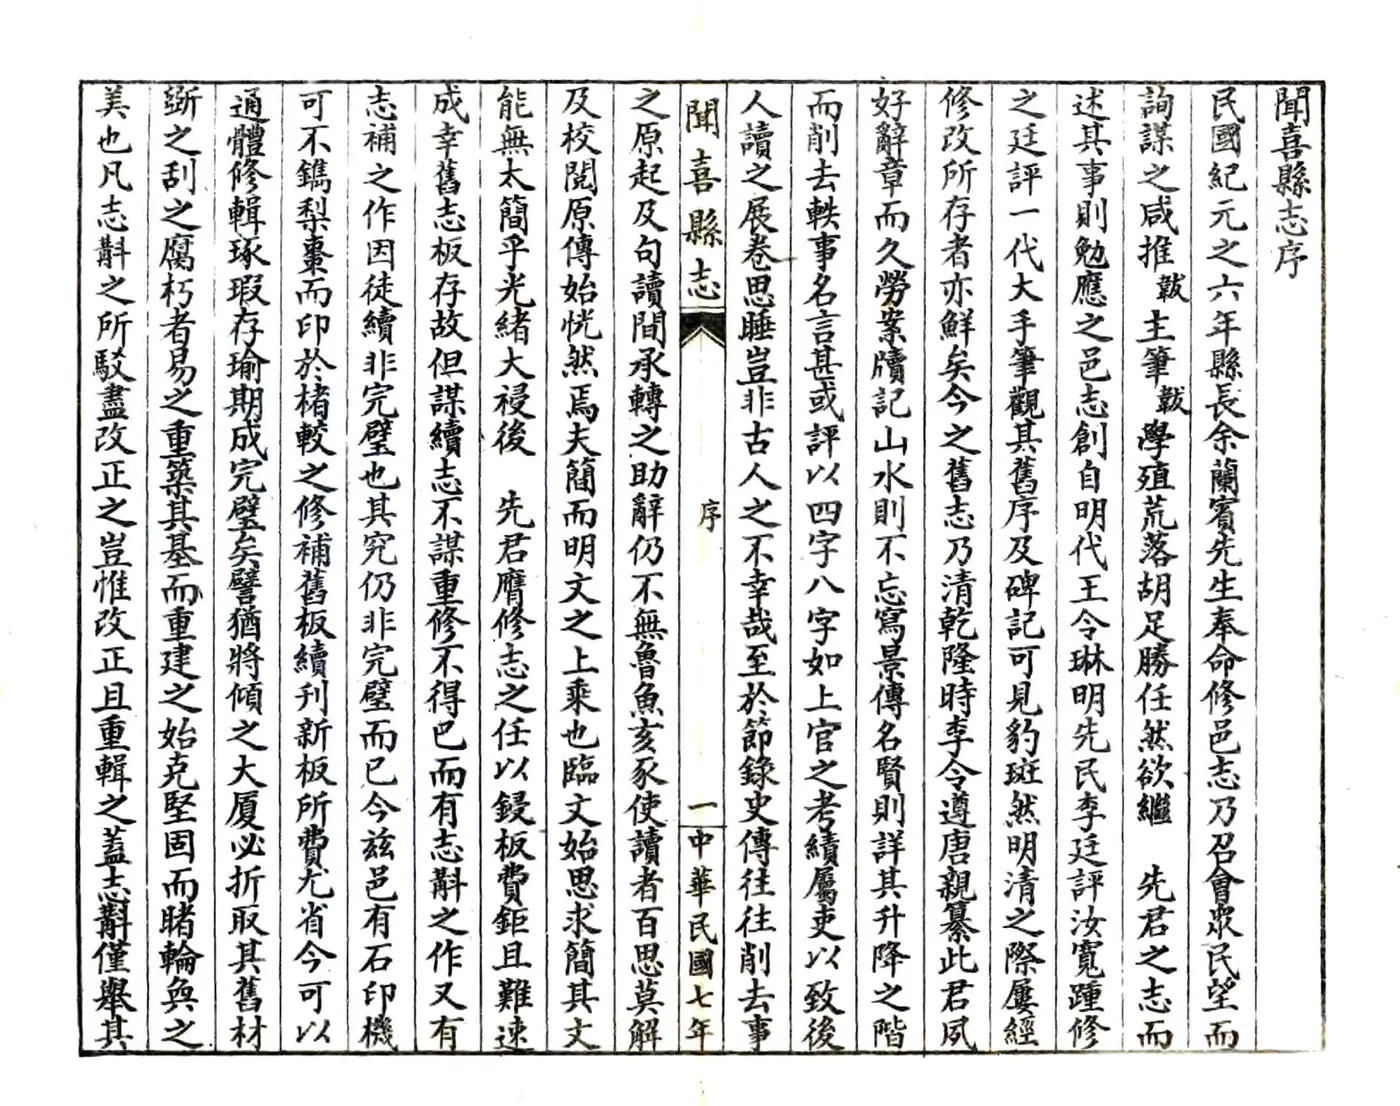 聞喜縣志序
民國紀元之六年縣長余蘭賓先生奉命修邑志乃召會眾民望而
詢謀之咸推韍主筆韍學殖荒落胡足勝任然欲繼　先君之志而
述其事則勉應之邑志創自明代王令琳明先民李廷評汝寬踵修
之廷評一代大手筆觀其舊序及碑記可見豹斑然明清之際屢經
修改所存者亦鮮矣今之舊志乃清乾隆時李令遵唐親纂此君夙
好辭章而久勞案牘記山水則不忘寫景傳名賢則詳其升降之階
而削去軼事名言甚或評以四字八字如上官之考績屬吏以致後
人讀之展卷思睡豈非古人之不幸哉至於節錄史傳往往削去事
聞喜縣志　序　一　中華民國七年
之原起及句讀間承轉之助辭仍不無魯魚亥豕使讀者百思莫解
及校閱原傳始恍然焉夫簡而明文之上乘也臨文始思求簡其文
能無太簡乎光緒大祲後　先君膺修志之任以鋟板費鉅且難速
成幸舊志板存故但謀續志不謀重修不得已而有志斠之作又有
志補之作因徒續非完璧也其究仍非完璧而已今茲邑有石印機
可不鐫梨棗而印於楮較之修補舊板續刊新板所費尤省今可以
通體修輯琢瑕存瑜期成完璧矣譬猶將傾之大厦必折取其舊材
斲之刮之腐朽者易之重築其基而重建之始克堅固而睹輪奐之
美也凡志斠之所駁盡改正之豈惟改正且重輯之蓋志斠僅舉其